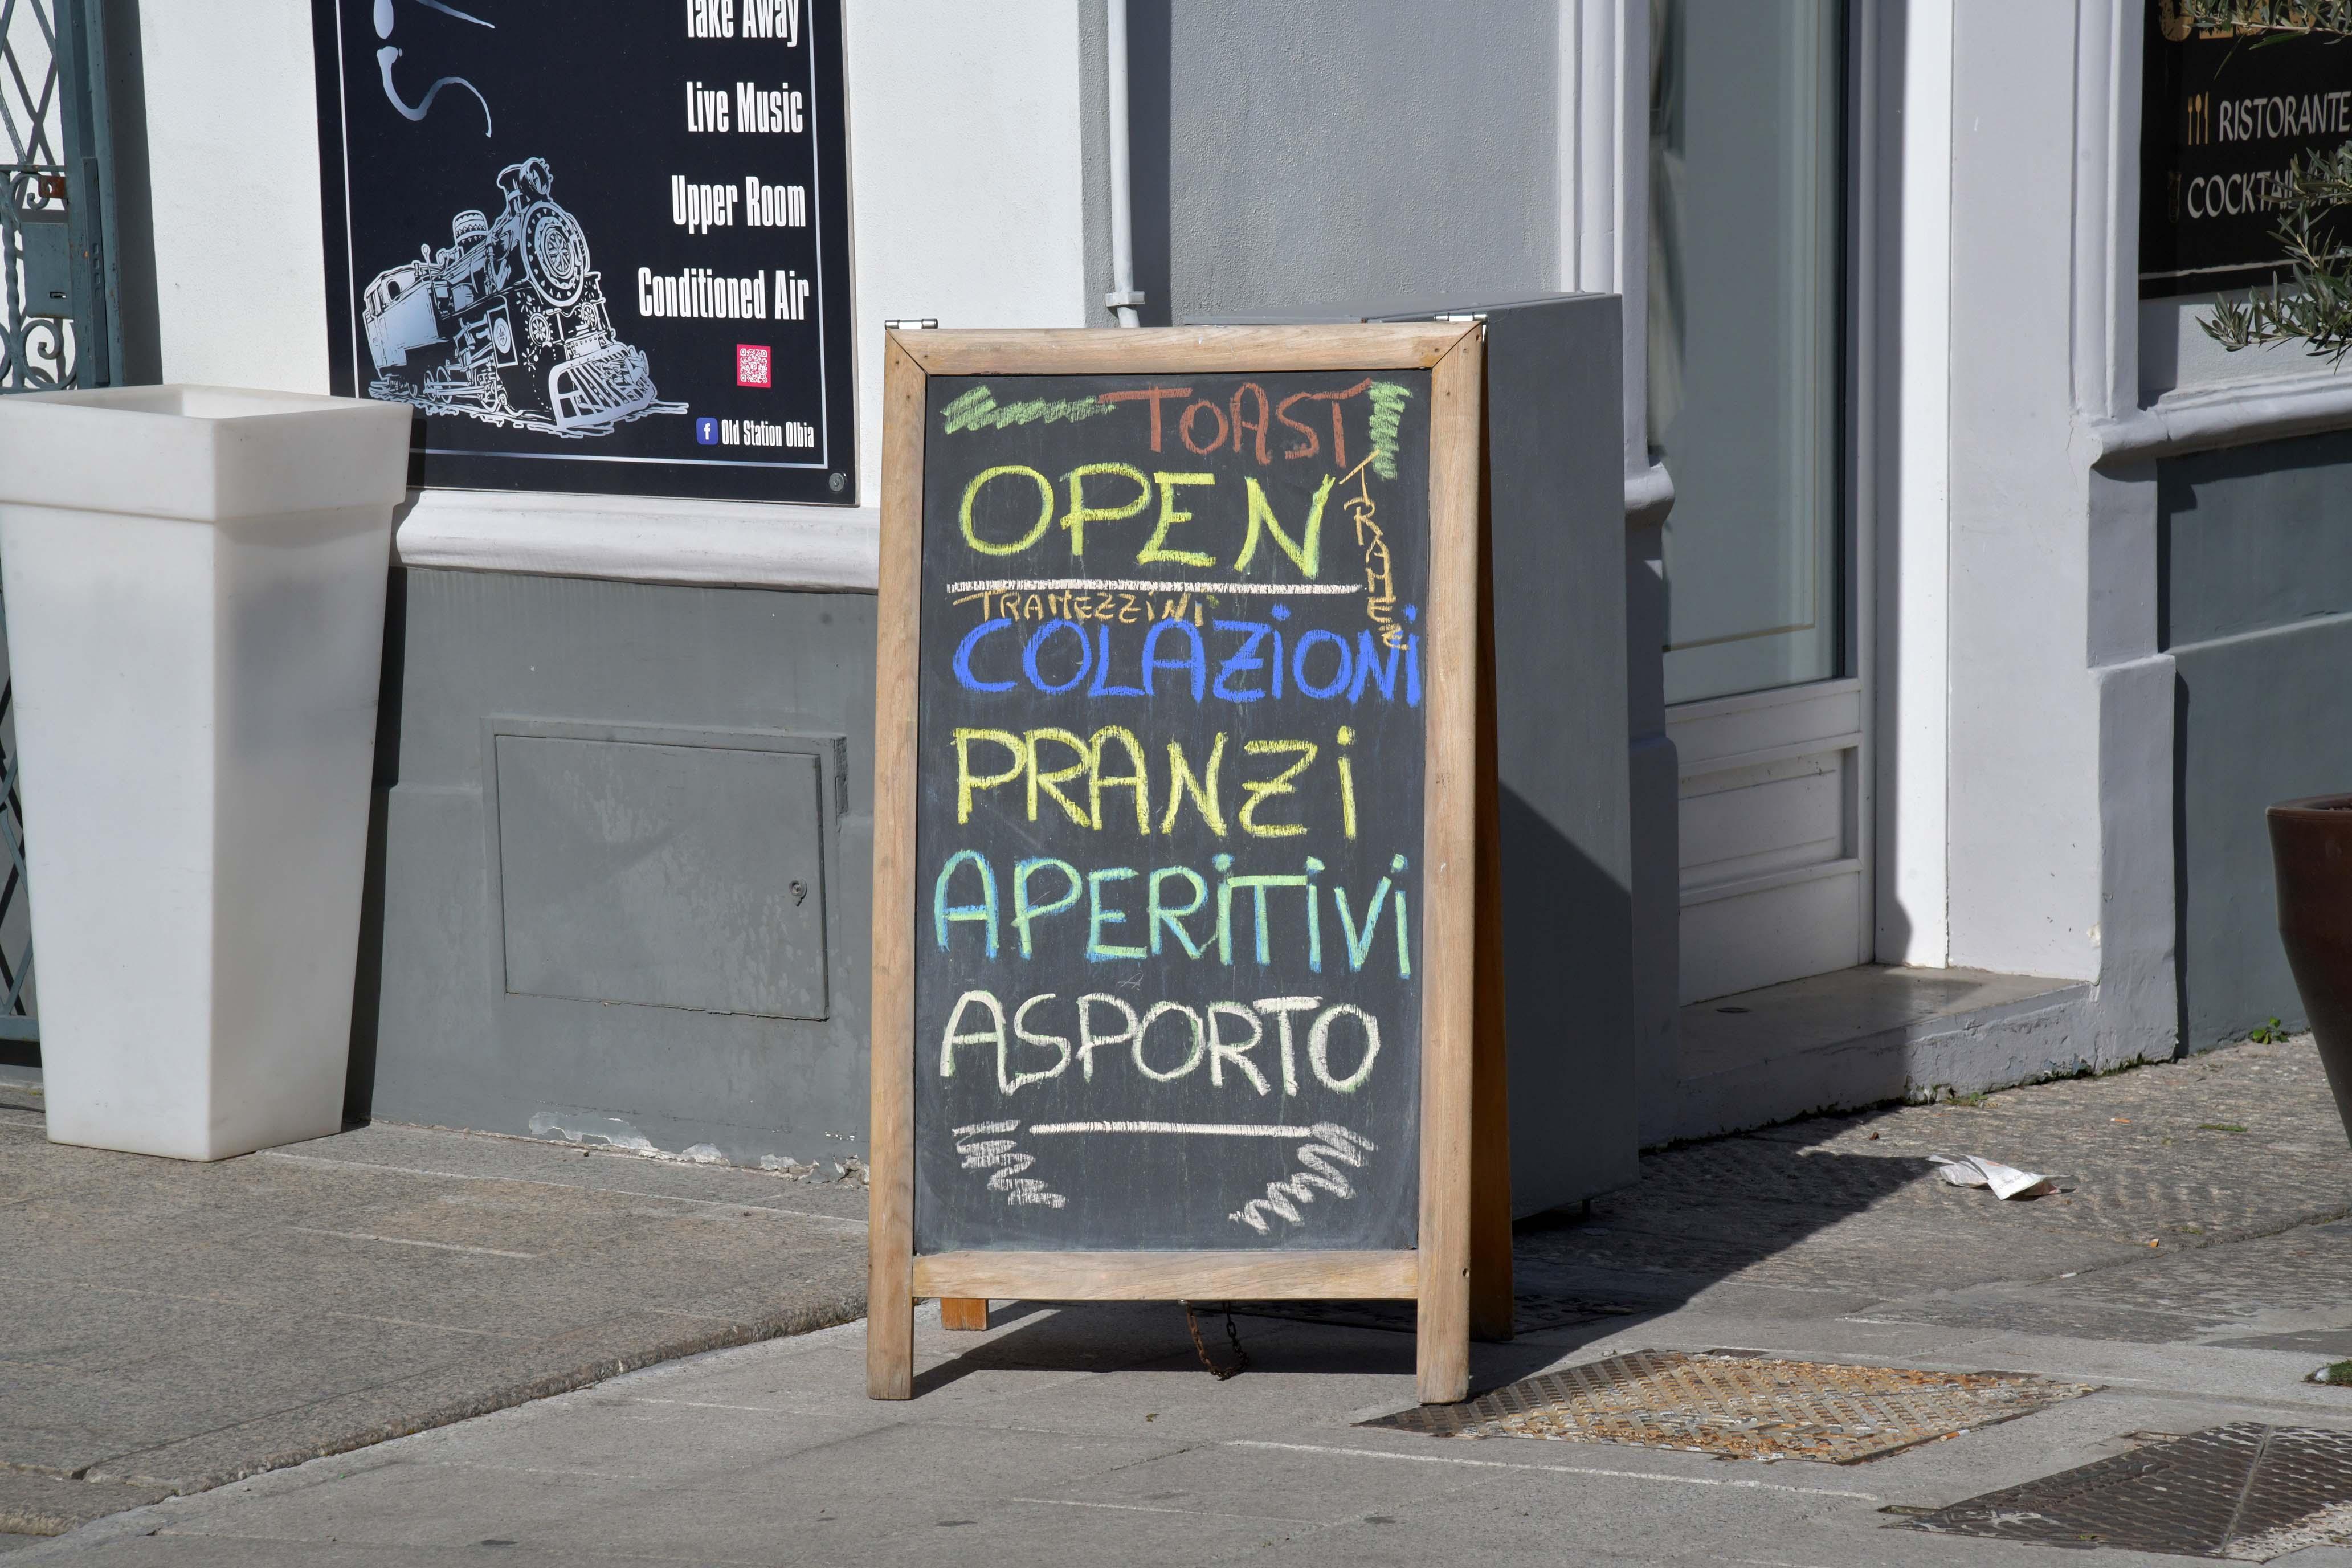 Take Away
Live Music
Upper Room
Conditioned Air
Old Station Olbia
TOAST
OPEN
TRAMEZ
TRAMEZZINI
COLAZIONI
PRANZI
APERITIVI
ASPORTO
RISTORANTE